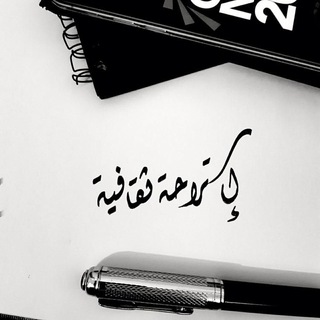 إستراحة ثقافية